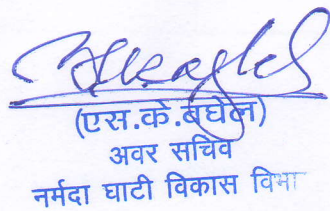 (एस.के.बघेल)
अवर सचिव
नर्मदा घाटी विकास विभा